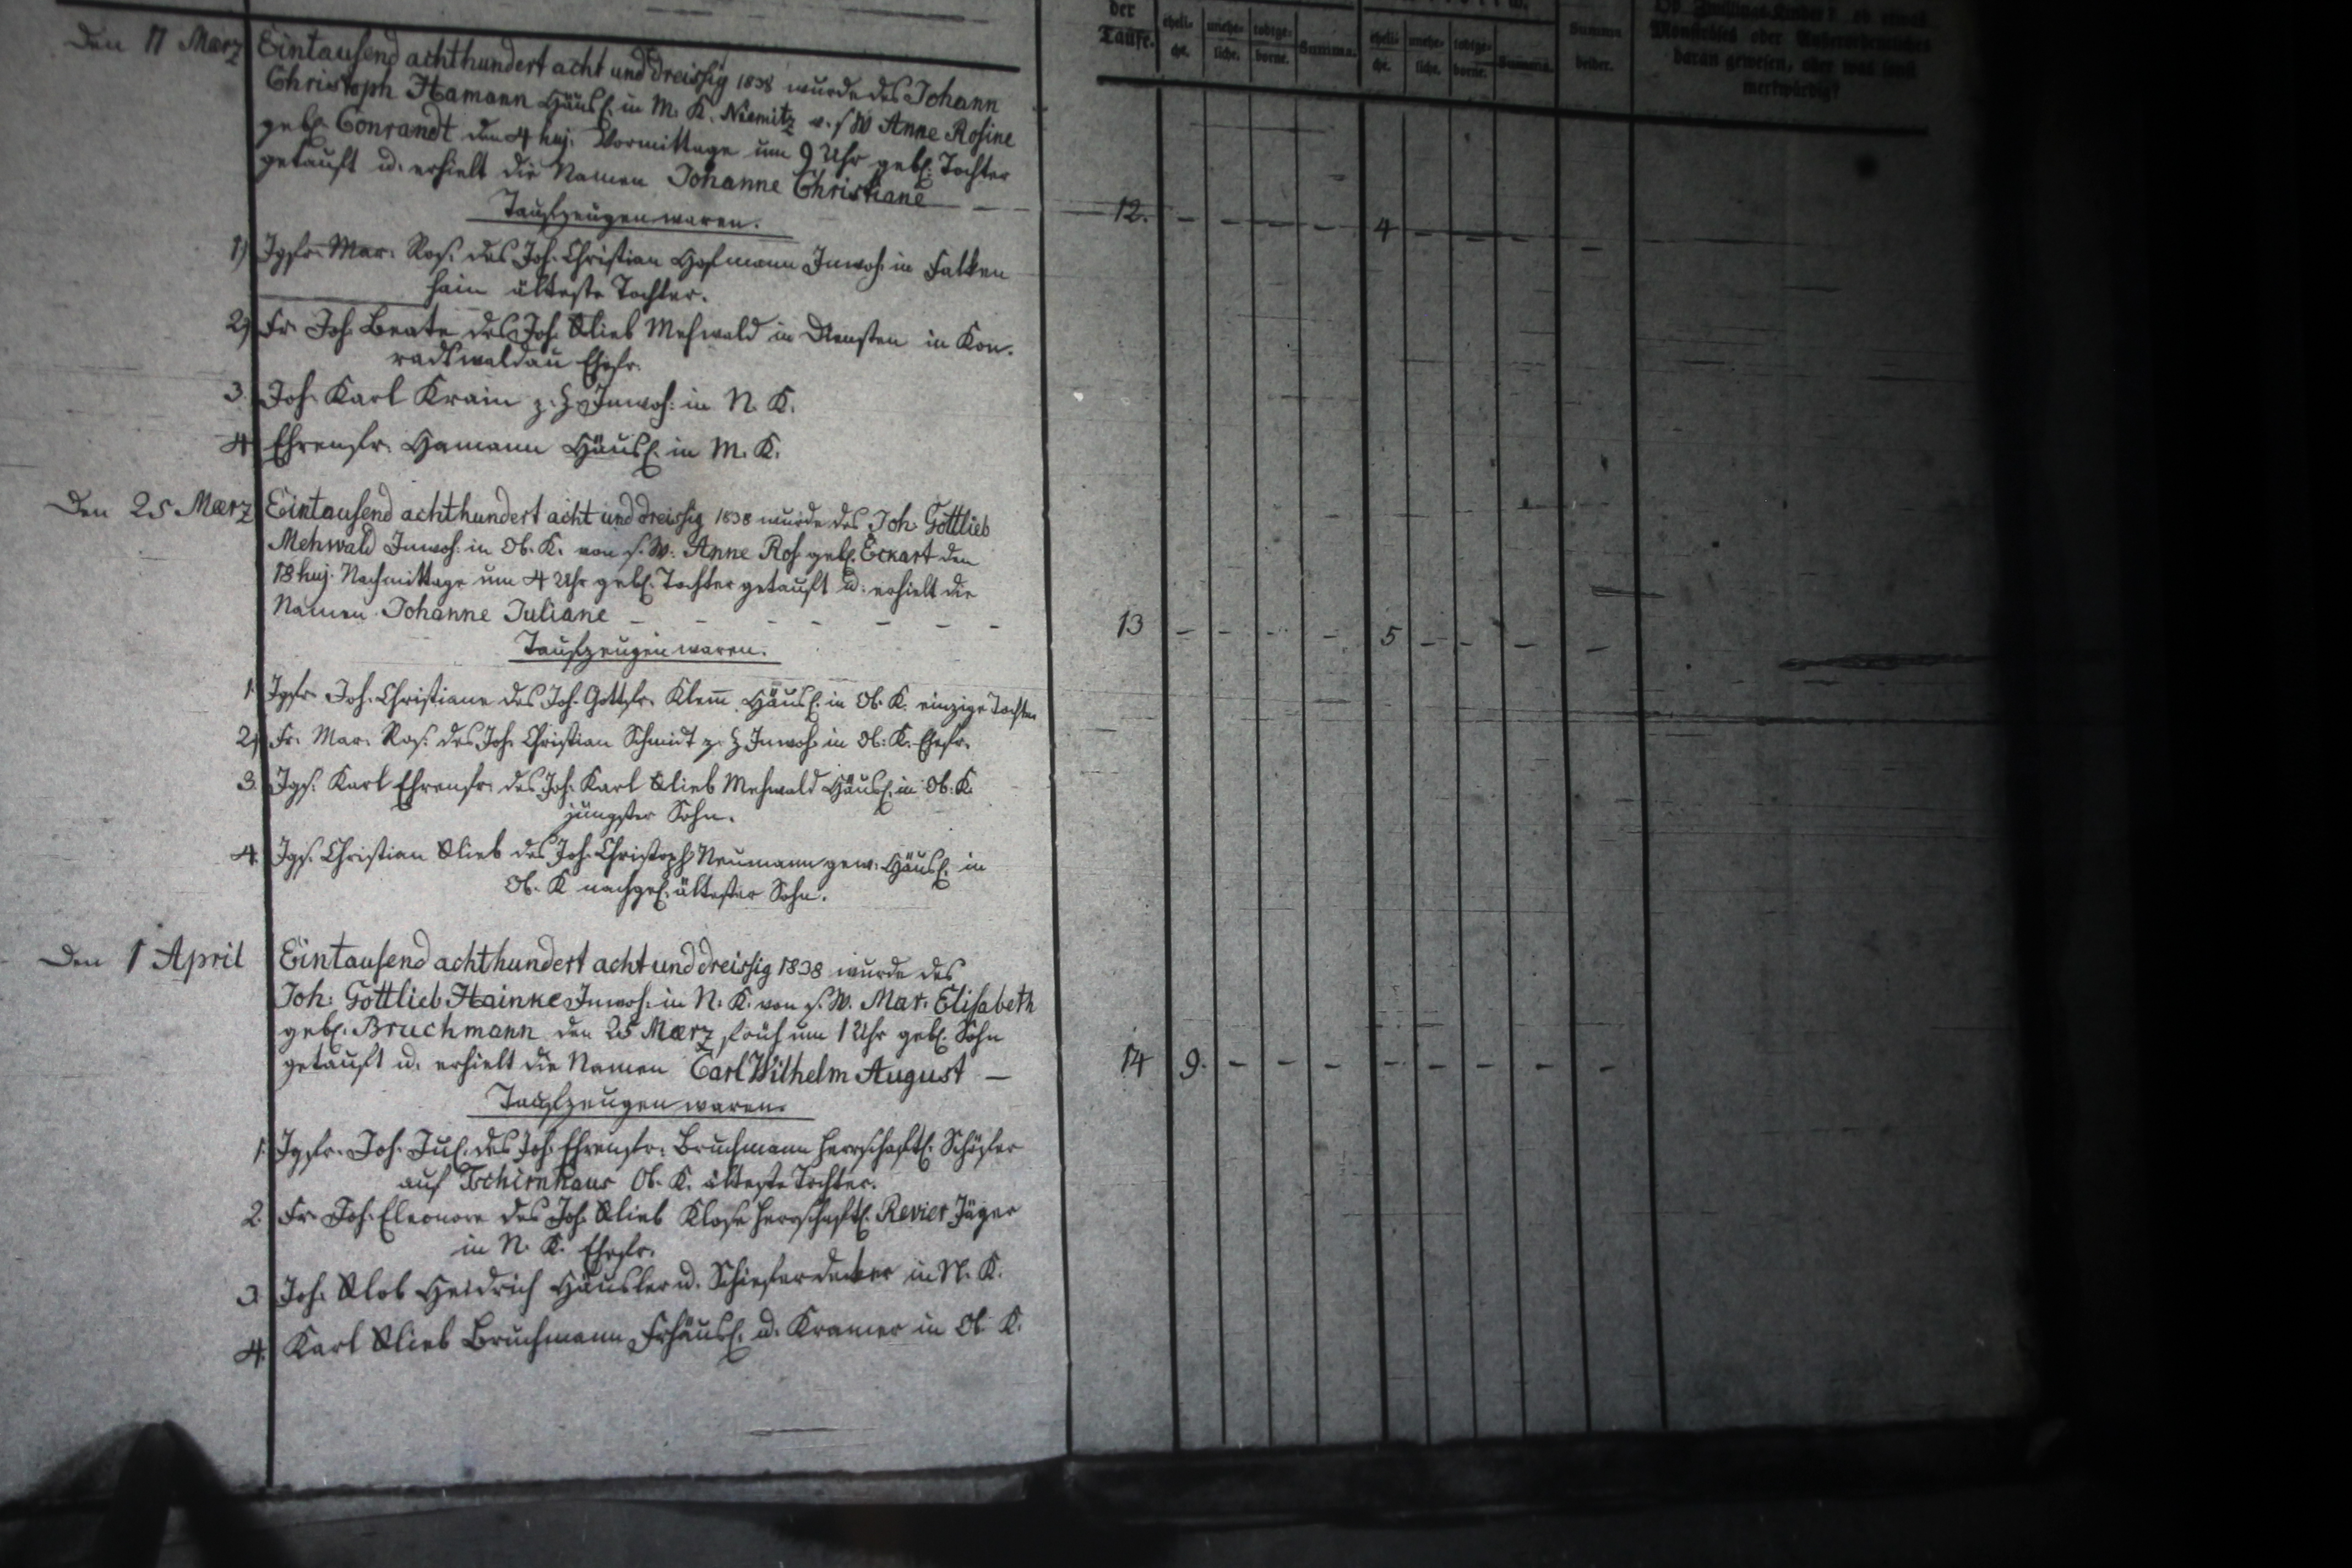 Den 11 Maerz Eintausend achthundert acht und dreissig 1838 wurde des Johann
Christoph Hamann Häusl. in M. K. Niemitz v. s W Anne Rosine
gebl. Conrandt den 4 huj. Vormittage um 9 Uhr gebl. Tochter
getauft u. erhielt die Namen Johanne Christiane
Taufzeugen waren.
1) Jgfr. Mar. Ros. des Joh. Christian Hofmann Inwoh. in Falken
hain älteste Tochter.
2) Fr. Joh. Beate des Joh. Glieb Mehwald in Diensten in Kon-
radtswaldau Ehefr.
3. Joh. Karl Krain z. H. Inwoh. in N. K.
4. Ehrenfr. Hamann Häusl. in M. K.
Den 25 Maerz Eintausend achthundert acht und dreissig 1838 wurde des Joh. Gottlieb
Mehwald Inwoh. in Ob. K. von s. W. Anne Ros. gebl. Eckart den
18 huj. Nachmittage um 4 Uhr gebl. Tochter getauft u. erhielt die
Namen Johanne Juliane
Taufzeugen waren.
1. Jgfr. Joh. Christiane des Joh. Gottfr. Klem̄ Häusl. in Ob. K. einzige Tochter
2) Fr. Mar. Ros. des Joh. Christian Schmidt z. H Inwoh. in Ob. K. Ehefr.
3. Jgs. Karl Ehrenfr. des Joh. Karl Glieb Mehwald Häusl. in Ob. K.
jüngster Sohn.
4. Jgs. Christian Glieb des Joh. Christoph Neumann gew. Häusl. in
Ob. K nachgel. ältester Sohn.
Den 1 April Eintausend achthundert acht und dreissig 1838 wurde des
Joh. Gottlieb Hainke Inwoh. in N. K. von s. W. Mar. Elisabeth
gebl. Bruchmann den 25 Maerz früh um 1 Uhr gebl. Sohn
getauft u. erhielt die Namen Carl Wilhelm August —
Taufzeugen waren.
1. Jgfr. Joh. Jul. des Joh. Ehrenfr. Bruchmann herrschaftl. Schäfer
auf Tschirnhaus Ob. K. älteste Tochter.
2. Fr. Joh. Eleonore des Joh. Glieb Klose herrschaftl. Revier Jäger
in N. K. Ehefr.
3. Joh. Glob Heidrich Häusler u. Schieferdecker in N. K.
4. Karl Glieb Bruchmann Frhäusl. u. Kramer in Ob. K.
der
Taufe.
eheli-
che.
unehe-
liche.
todtge-
borne.
Summa.
eheli-
che.
unehe-
liche.
todtge-
borne.
Summa.
Summa
beider.
Ob Zwillings-Kinder? ob etwas
Monströses oder Außerordentliches
daran gewesen, oder was sonst
merkwürdig?
12. - - - - 4 - - - -
13 - - - - 5 - - - -
14 9. - - - - - - - -